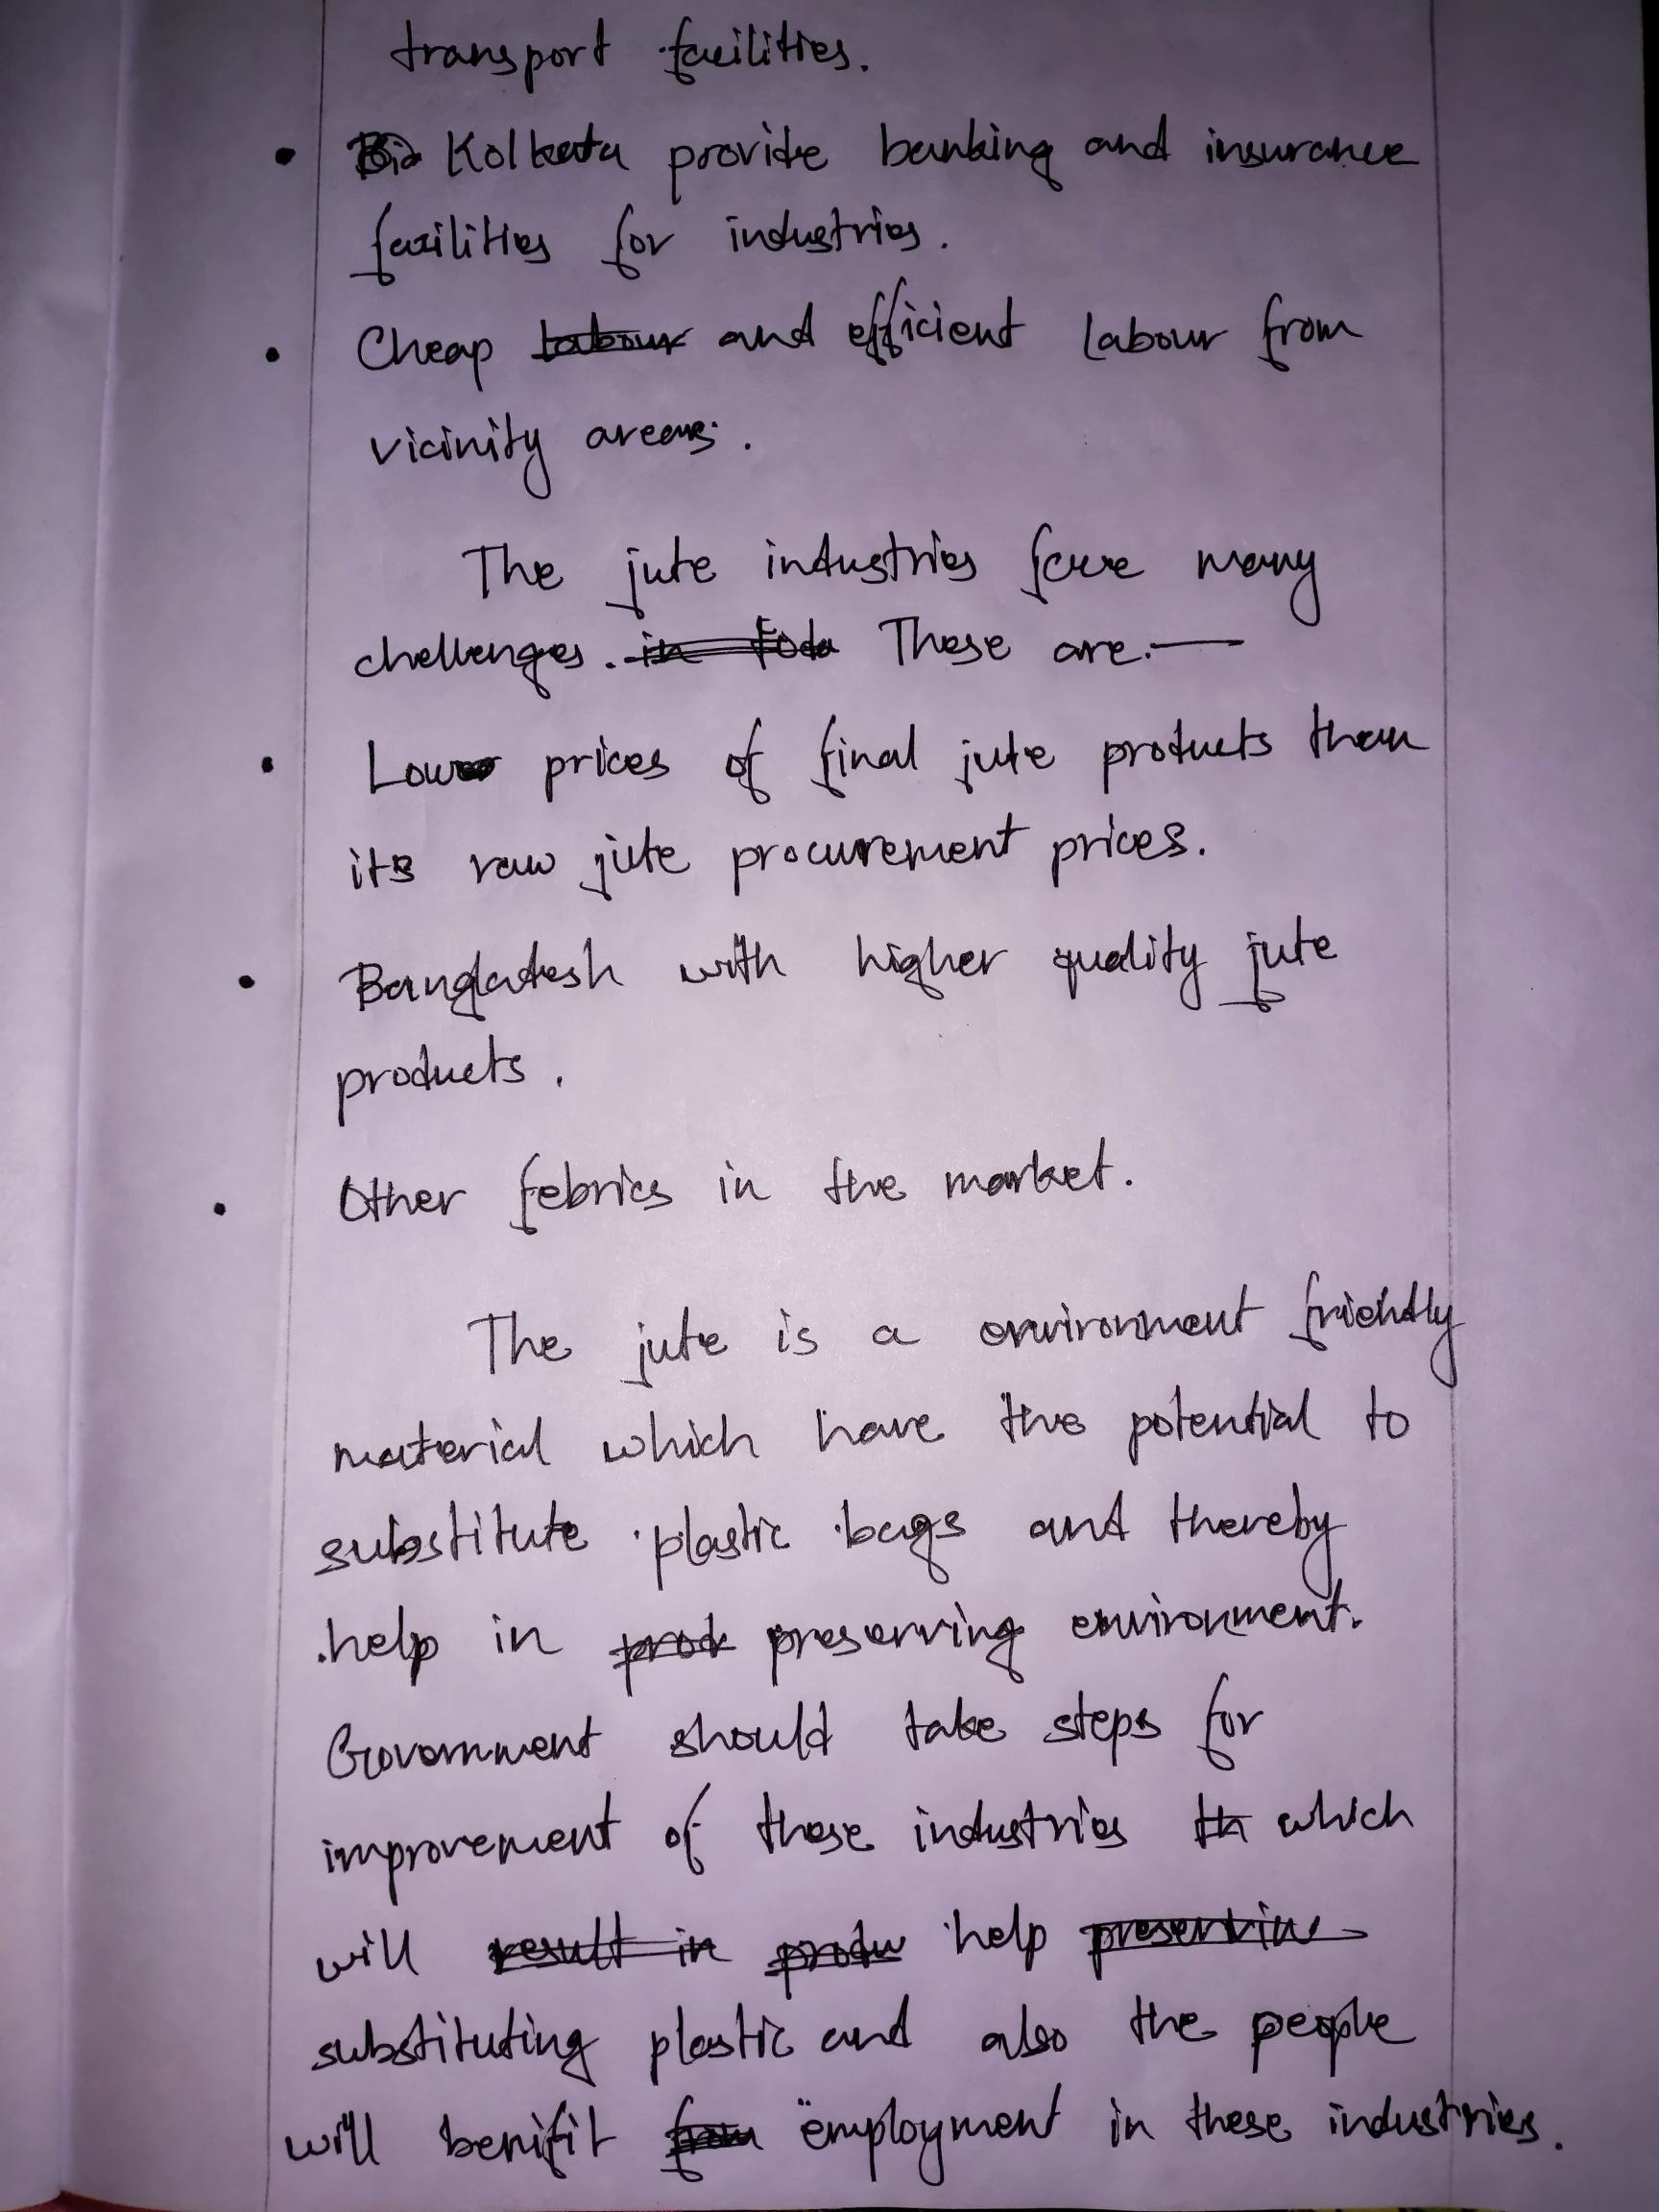 transport facilities.
• Kolkata provide banking and insurance
facilities for industries.
• Cheap labour and efficient labour from
vicinity areas.
The jute industries face many
challenges. in Toda These are.—
• Low prices of final jute products than
its raw jute procurement prices.
• Bangladesh with higher quality jute
products.
• Other febrics in the market.
The jute is a environment friendly
material which have the potential to
substitute plastic bags and thereby
help in prod preserving environment.
Government should take steps for
improvement of these industries th which
will result in produ help preservin
substituting plastic and also the people
will benifit from employment in these industries.